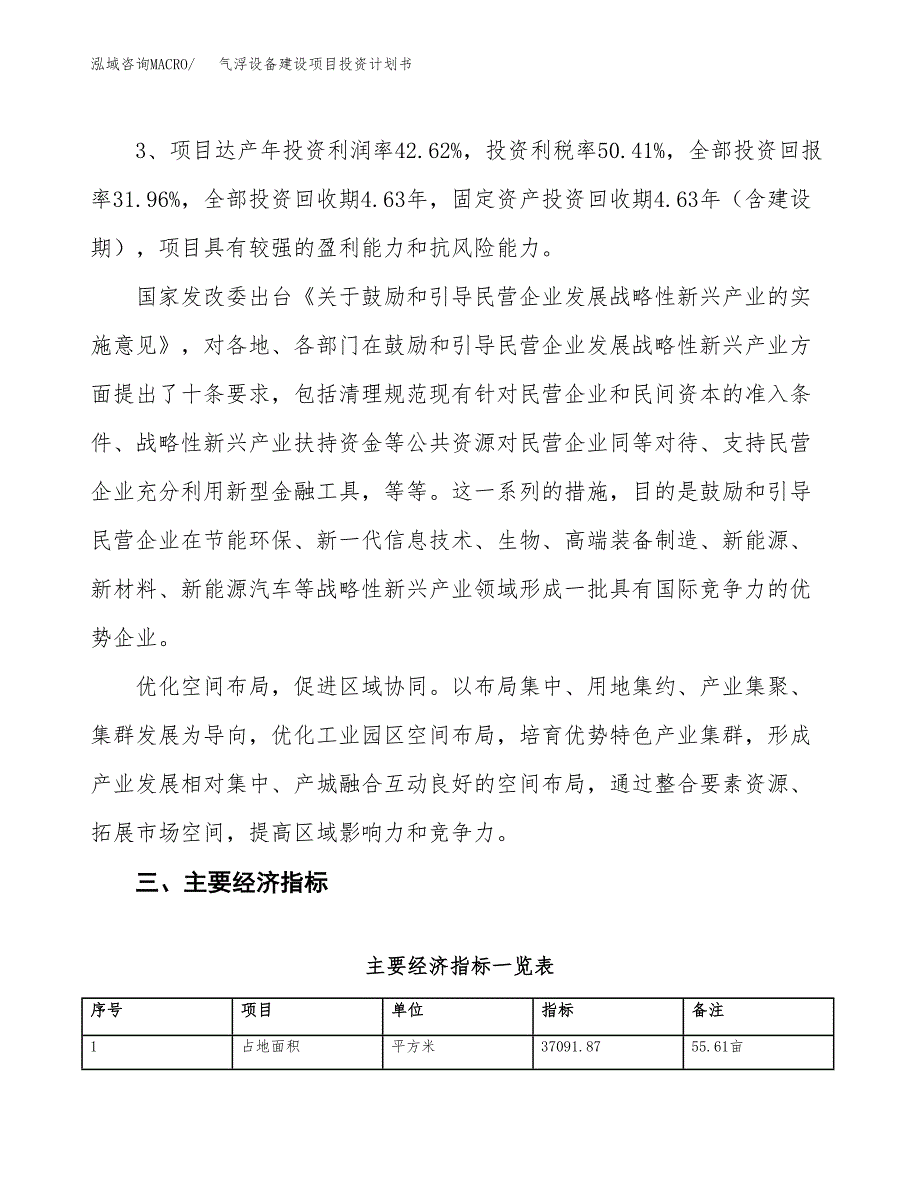 泓域咨询MACRO/ 气浮设备建设项目投资计划书
3、项目达产年投资利润率42.62%，投资利税率50.41%，全部投资回报
率31.96%，全部投资回收期4.63年，固定资产投资回收期4.63年（含建设
期），项目具有较强的盈利能力和抗风险能力。
国家发改委出台《关于鼓励和引导民营企业发展战略性新兴产业的实
施意见》，对各地、各部门在鼓励和引导民营企业发展战略性新兴产业方
面提出了十条要求，包括清理规范现有针对民营企业和民间资本的准入条
件、战略性新兴产业扶持资金等公共资源对民营企业同等对待、支持民营
企业充分利用新型金融工具，等等。这一系列的措施，目的是鼓励和引导
民营企业在节能环保、新一代信息技术、生物、高端装备制造、新能源、
新材料、新能源汽车等战略性新兴产业领域形成一批具有国际竞争力的优
势企业。
优化空间布局，促进区域协同。以布局集中、用地集约、产业集聚、
集群发展为导向，优化工业园区空间布局，培育优势特色产业集群，形成
产业发展相对集中、产城融合互动良好的空间布局，通过整合要素资源、
拓展市场空间，提高区域影响力和竞争力。
三、主要经济指标
主要经济指标一览表
序号 项目 单位 指标 备注
1 占地面积 平方米 37091.87 55.61亩